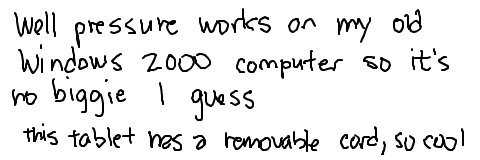 Well pressure works on my old
Windows 2000 computer so it's
no biggie I guess
this tablet has a removable cord, so cool